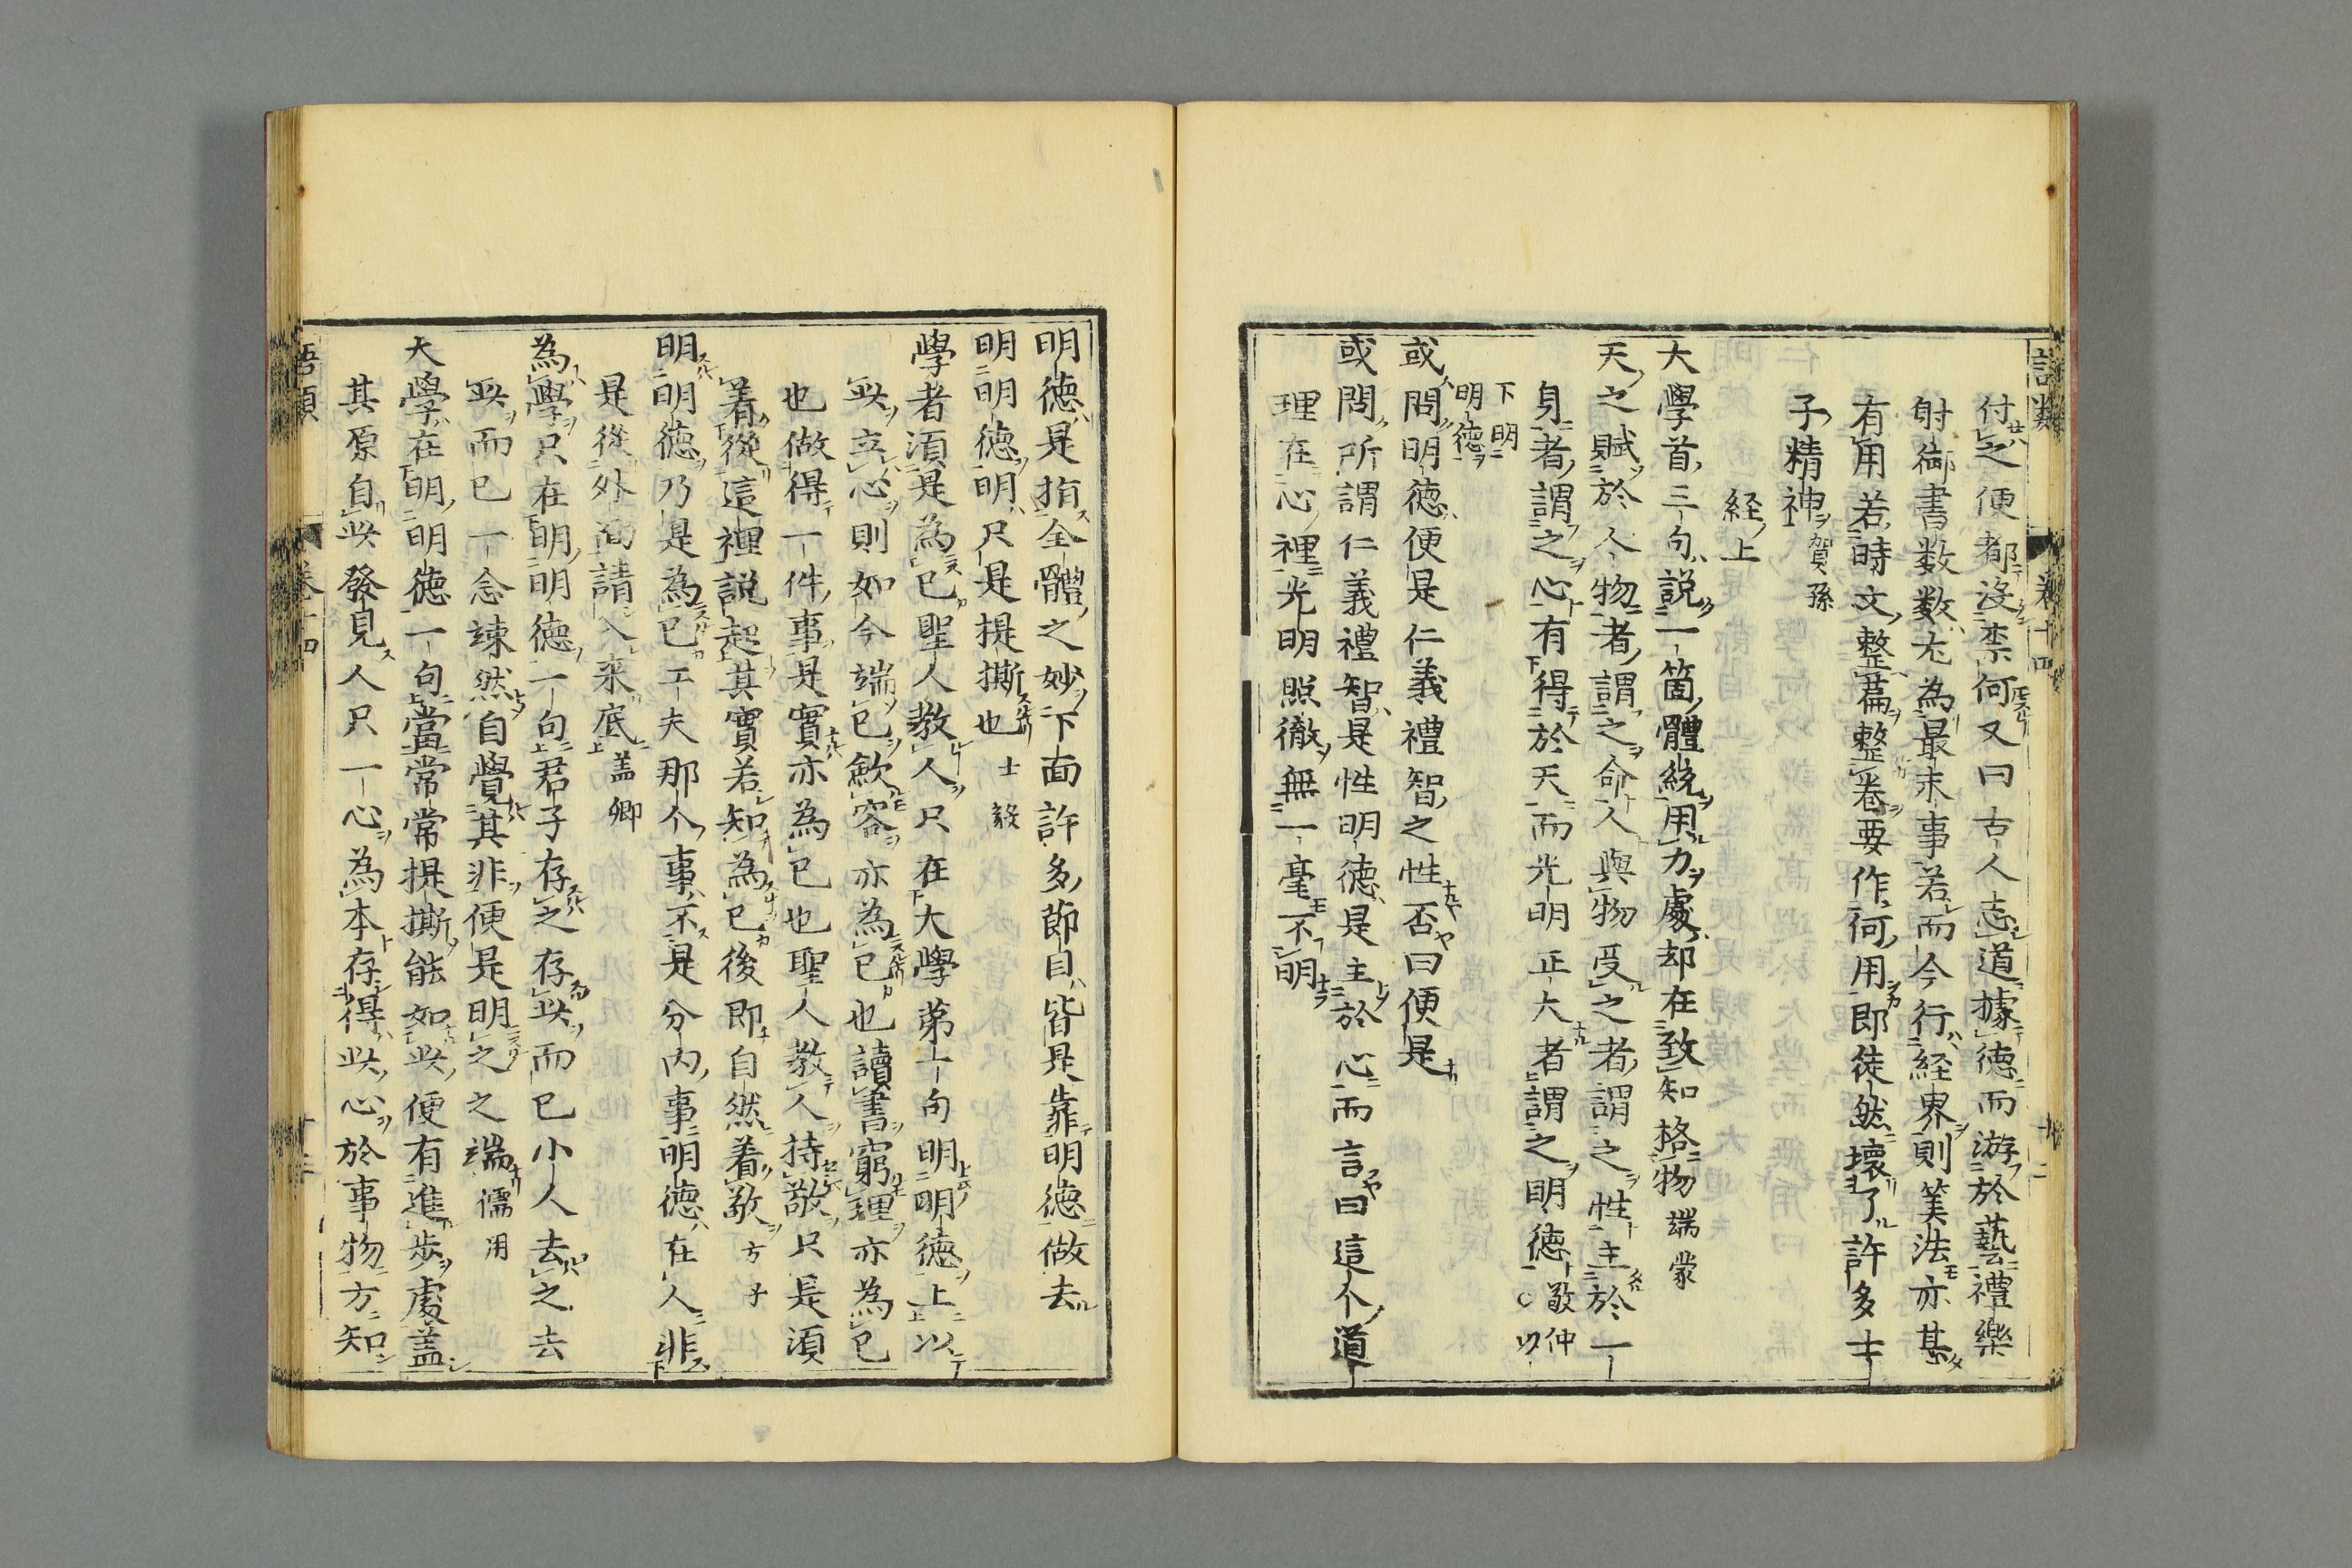 語類 卷十四 十二
付之便都沒柰何又曰古人志道據德而游於藝禮樂
射御書数数尤為最末事若而今行経界則筭法亦甚
有用若時文整篇整卷要作何用即徒然壞了許多士
子精神賀孫
経上
大學首三句説一箇體統用力處却在致知格物端蒙
天之賦於人物者謂之命人與物受之者謂之性主於一
身者謂之心有得於天而光明正大者謂之明德敬仲○以
下明
明德
或問明德便是仁義禮智之性否曰便是
或問所謂仁義禮智是性明德是主於心而言曰這个道
理在心裡光明照徹無一毫不明
明德是指全體之妙下面許多節目皆是靠明德做去
明明德明只是提撕也士毅
學者須是為己聖人教人只在大學第一句明明德上以
此立心則如今端己歛容亦為己也讀書窮理亦為己
也做得一件事是實亦為己也聖人教人持敬只是須
着從這裡説起其實若知為己後即自然着敬方子
明明德乃是為己工夫那个事不是分内事明德在人非
是從外面請入来底盖卿
為學只在明明德一句君子存之存此而已小人去之去
此而已一念竦然自覺其非便是明之之端儒用
大學在明明德一句當常常提撕能如此便有進步處盖
其原自此發見人只一心為本存得此心於事物方知
語類 卷十四 十二